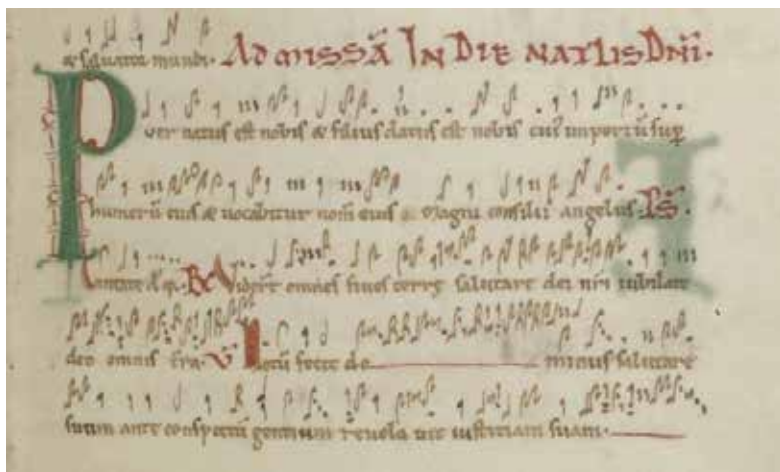 mundi. AD MISSĀ IN DIE NATLIS DÑI.
Puer natus est nobis & filius datus est nobis cuiˀ imperiū sup
humerū eius & uocabitur nom̄ eius magni consilii angelus. PS.
Cantate d. q. R Viderunt omnes fines terrę salutare dei nr̄i iubilate
deo omnis tr̄a. V Notū fecit do minus salutare
suum ante conspectū gentium reuela uit iustitiam suam.